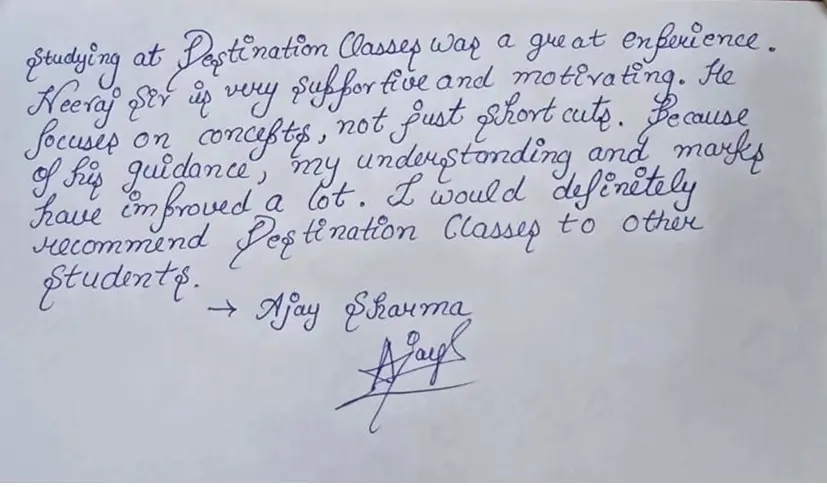 Studying at Destination Classes was a great experience.
Neeraj Sir is very supportive and motivating. He
focuses on concepts, not just short cuts. Because
of his guidance, my understanding and marks
have improved a lot. I would definitely
recommend Destination Classes to other
students.
→ Ajay Sharma
AjayS